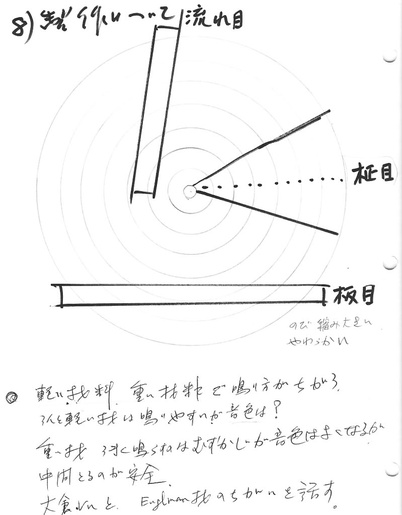 8) 流れ目
柾目
板目
のび 縮み大きい
やわらかい
軽い材料 重い材料で鳴り方がちがう
軽い材は鳴りやすいが音色は?
重い材 鳴らすはむずかしいが音色はよくなるか
中間とるのが安全
と 材のちがいを話す。